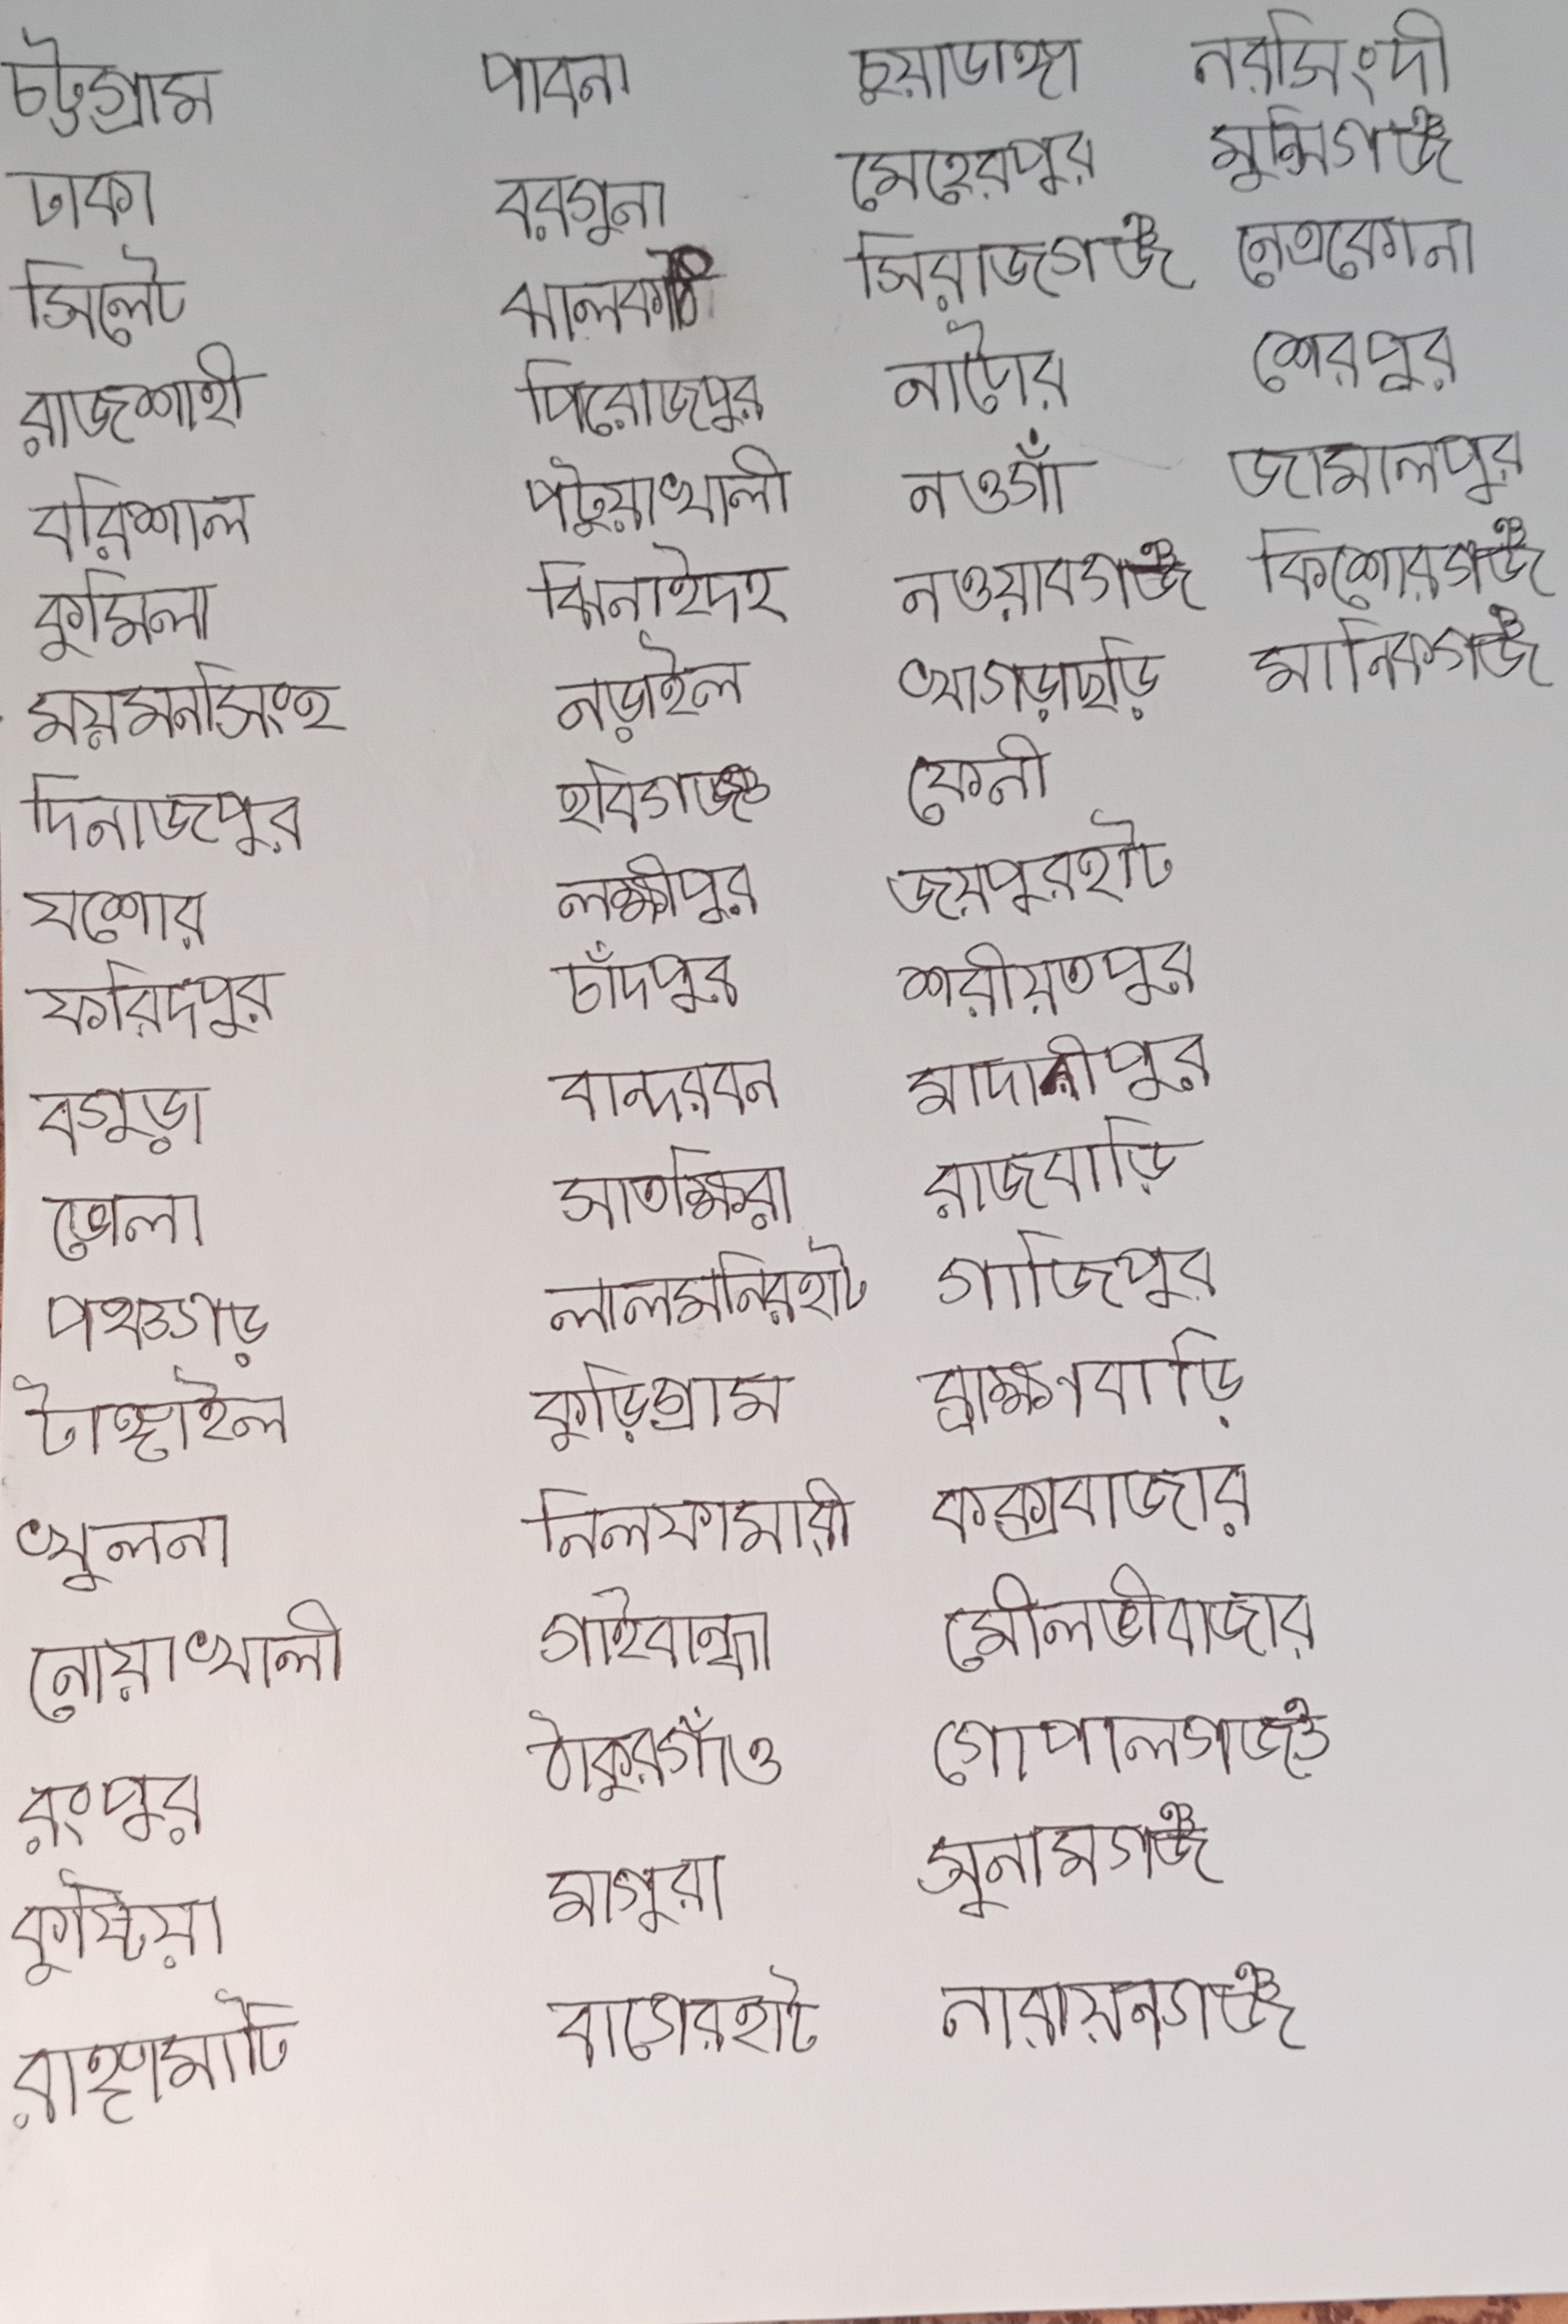 চট্টগ্রাম
ঢাকা
সিলেট
রাজশাহী
বরিশাল
কুমিলা
ময়মনসিংহ
দিনাজপুর
যশোর
ফরিদপুর
বগুড়া
ভোলা
পঞ্চগড়
টাঙ্গাইল
খুলনা
নোয়াখালী
রংপুর
কুষ্টিয়া
রাঙ্গামাটি
পাবনা
বরগুনা
ঝালকাঠি
পিরোজপুর
পটুয়াখালী
ঝিনাইদহ
নড়াইল
হবিগঞ্জ
লক্ষীপুর
চাঁদপুর
বান্দরবন
সাতক্ষিরা
লালমনিরহাট
কুড়িগ্রাম
নিলফামারী
গাইবান্ধা
ঠাকুরগাঁও
মাগুরা
বাগেরহাট
চুয়াডাঙ্গা
মেহেরপুর
সিরাজগঞ্জ
নাটোর
নওগাঁ
নওয়াবগঞ্জ
খাগড়াছড়ি
ফেনী
জয়পুরহাট
শরীয়তপুর
মাদারীপুর
রাজবাড়ি
গাজিপুর
ব্রাক্ষনবাড়ি
কক্সবাজার
মৌলভীবাজার
গোপালগঞ্জ
সুনামগঞ্জ
নারায়নগঞ্জ
নরসিংদী
মুন্সিগঞ্জ
নেত্রকোনা
শেরপুর
জামালপুর
কিশোরগঞ্জ
মানিকগঞ্জ